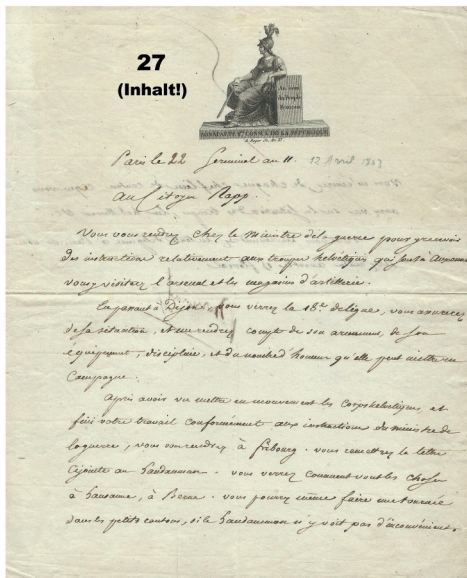 27
(Inhalt!)
Au nom
du Peuple
Français
BONAPARTE 1er CONSUL DE LA RÉPUBLIQUE
Paris le 22 Germinal an 11. 12 Avril 1803
Au Citoyen Rapp.
Vous vous rendrez chez le Ministre de la guerre pour y recevoir
des instructions relativement aux troupes helvétiques qui sont à Auxonne
vous y visiterez l'arsenal et les magasins d'artillerie.
En passant à Dijon vous verrez la 18e de ligne, vous
de sa situation, et me rendrez compte de son armement, de son
equipement, discipline, et du nombre d'hommes qu'elle peut mettre en
Campagne.
Après avoir vu mettre en mouvement les Corps helvétiques, et
fini votre travail conformément aux instructions du ministre de
la guerre, vous vous rendrez à fribourg. vous remettrez la lettre
cijointe au Landamman. vous verrez comment vont les choses
à Lausanne, à Berne. vous pourrez même faire une tournée
dans les petits cantons, si le Landamman n'y voit pas d'inconvénient.